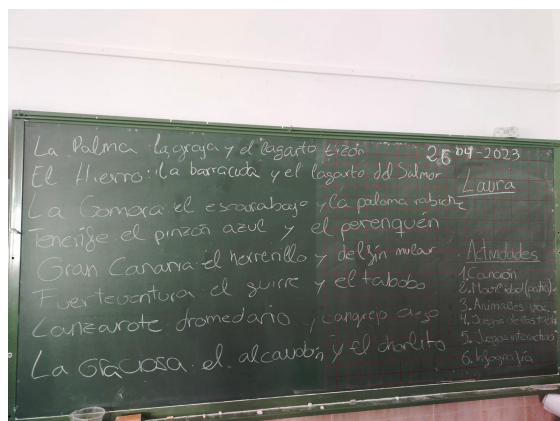 La Palma la graja y el lagarto tizón
El Hierro: la barracuda y el lagarto del Salmor
La Gomera el escarabajo y la paloma rabiche
Tenerife el pinzón azul y el perenquén
Gran Canaria el herrerillo y delfín mular
Fuerteventura el guirre y el tabobo
Lanzarote dromedario y cangrejo ciego
La Graciosa el alcaudón y el chorlito
26-04-2023
Laura
Actividades
1. Canción
2.
3. Animales
4. Juegos de
5. Juegos interactivos
6. Infografía